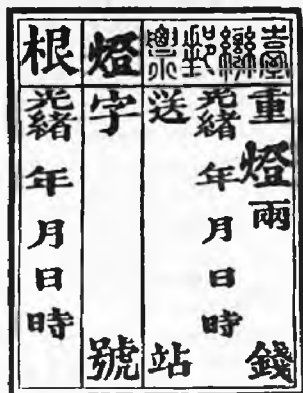 臺灣郵票
重燈兩 錢
光緒 年 月 日 時
送 站
燈字 號
根
光緒 年 月 日 時